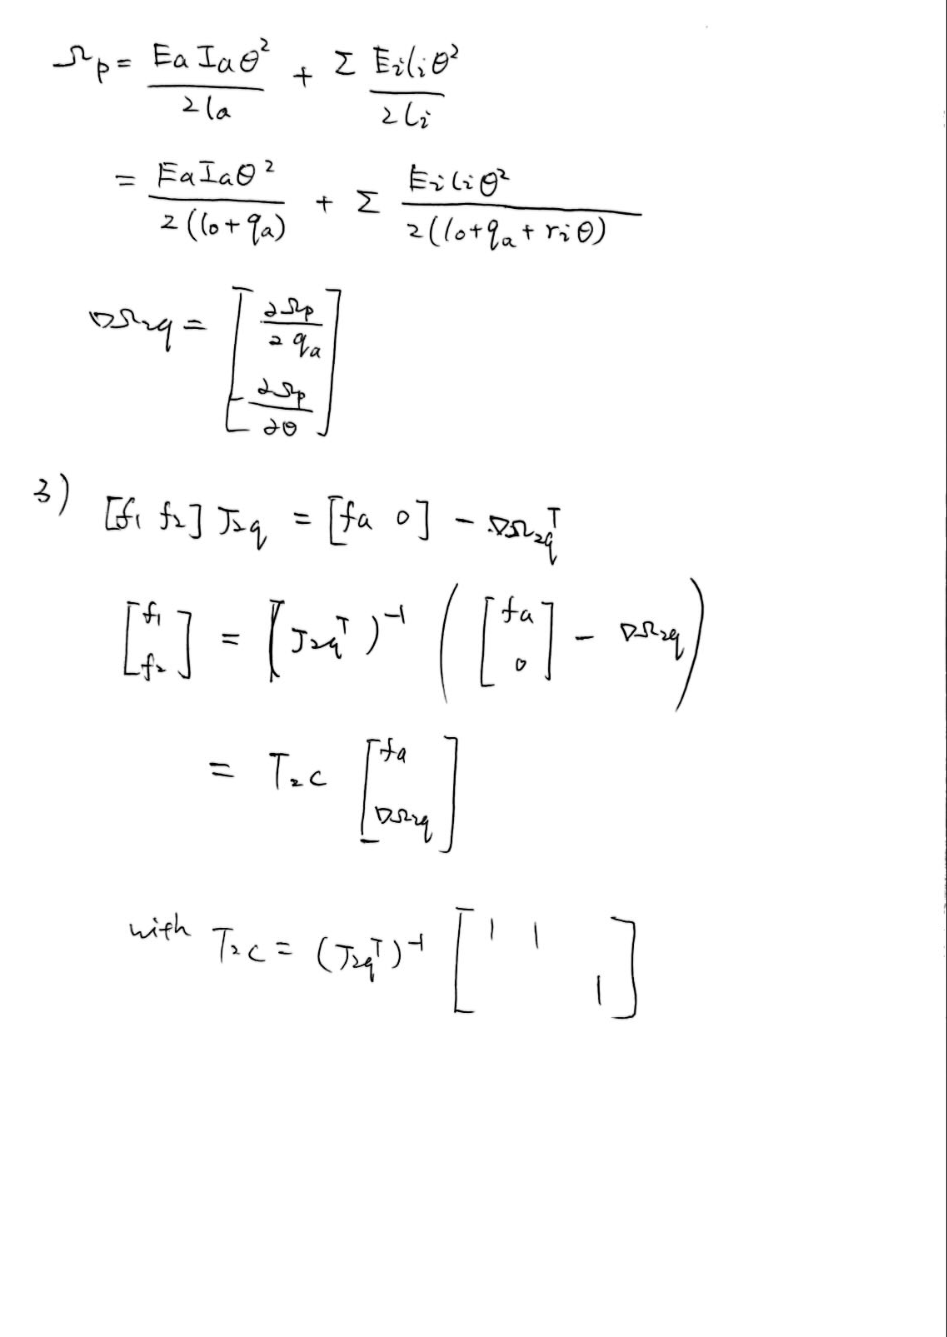 Ωp = EaIaθ²/2la + Σ Eiliθ²/2li
= EaIaθ²/2(l0+qa) + Σ Eiliθ²/2(l0+qa+riθ)
∇Ω2q = [∂Ωp/∂qa
∂Ωp/∂θ]
3) [f1 f2] J2q = [fa 0] - ∇Ω2qᵀ
[f1
f2] = (J2qᵀ)⁻¹ ([fa
0] - ∇Ω2q)
= T2C [fa
∇Ω2q]
with T2C = (J2qᵀ)⁻¹ [1 1
1]